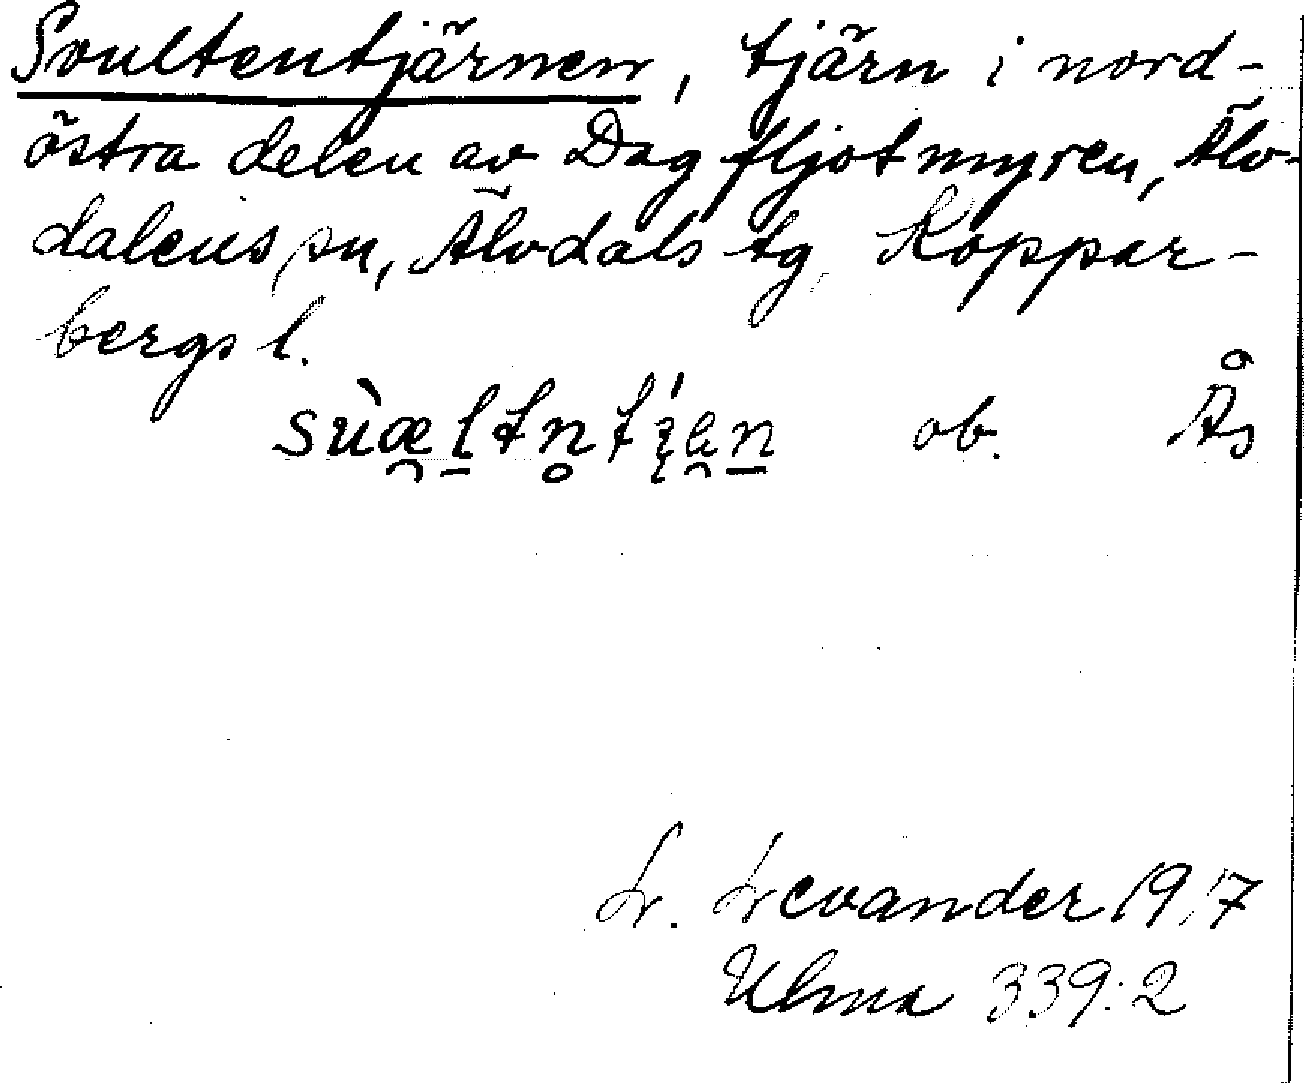 Svultentjärnen, tjärn i nord-
östra delen av Dagfljotmyren, Älv-
dalens sn, Älvdals tg Koppar-
bergs l.
ob. Ås
L. Levander
Ulma 339:2